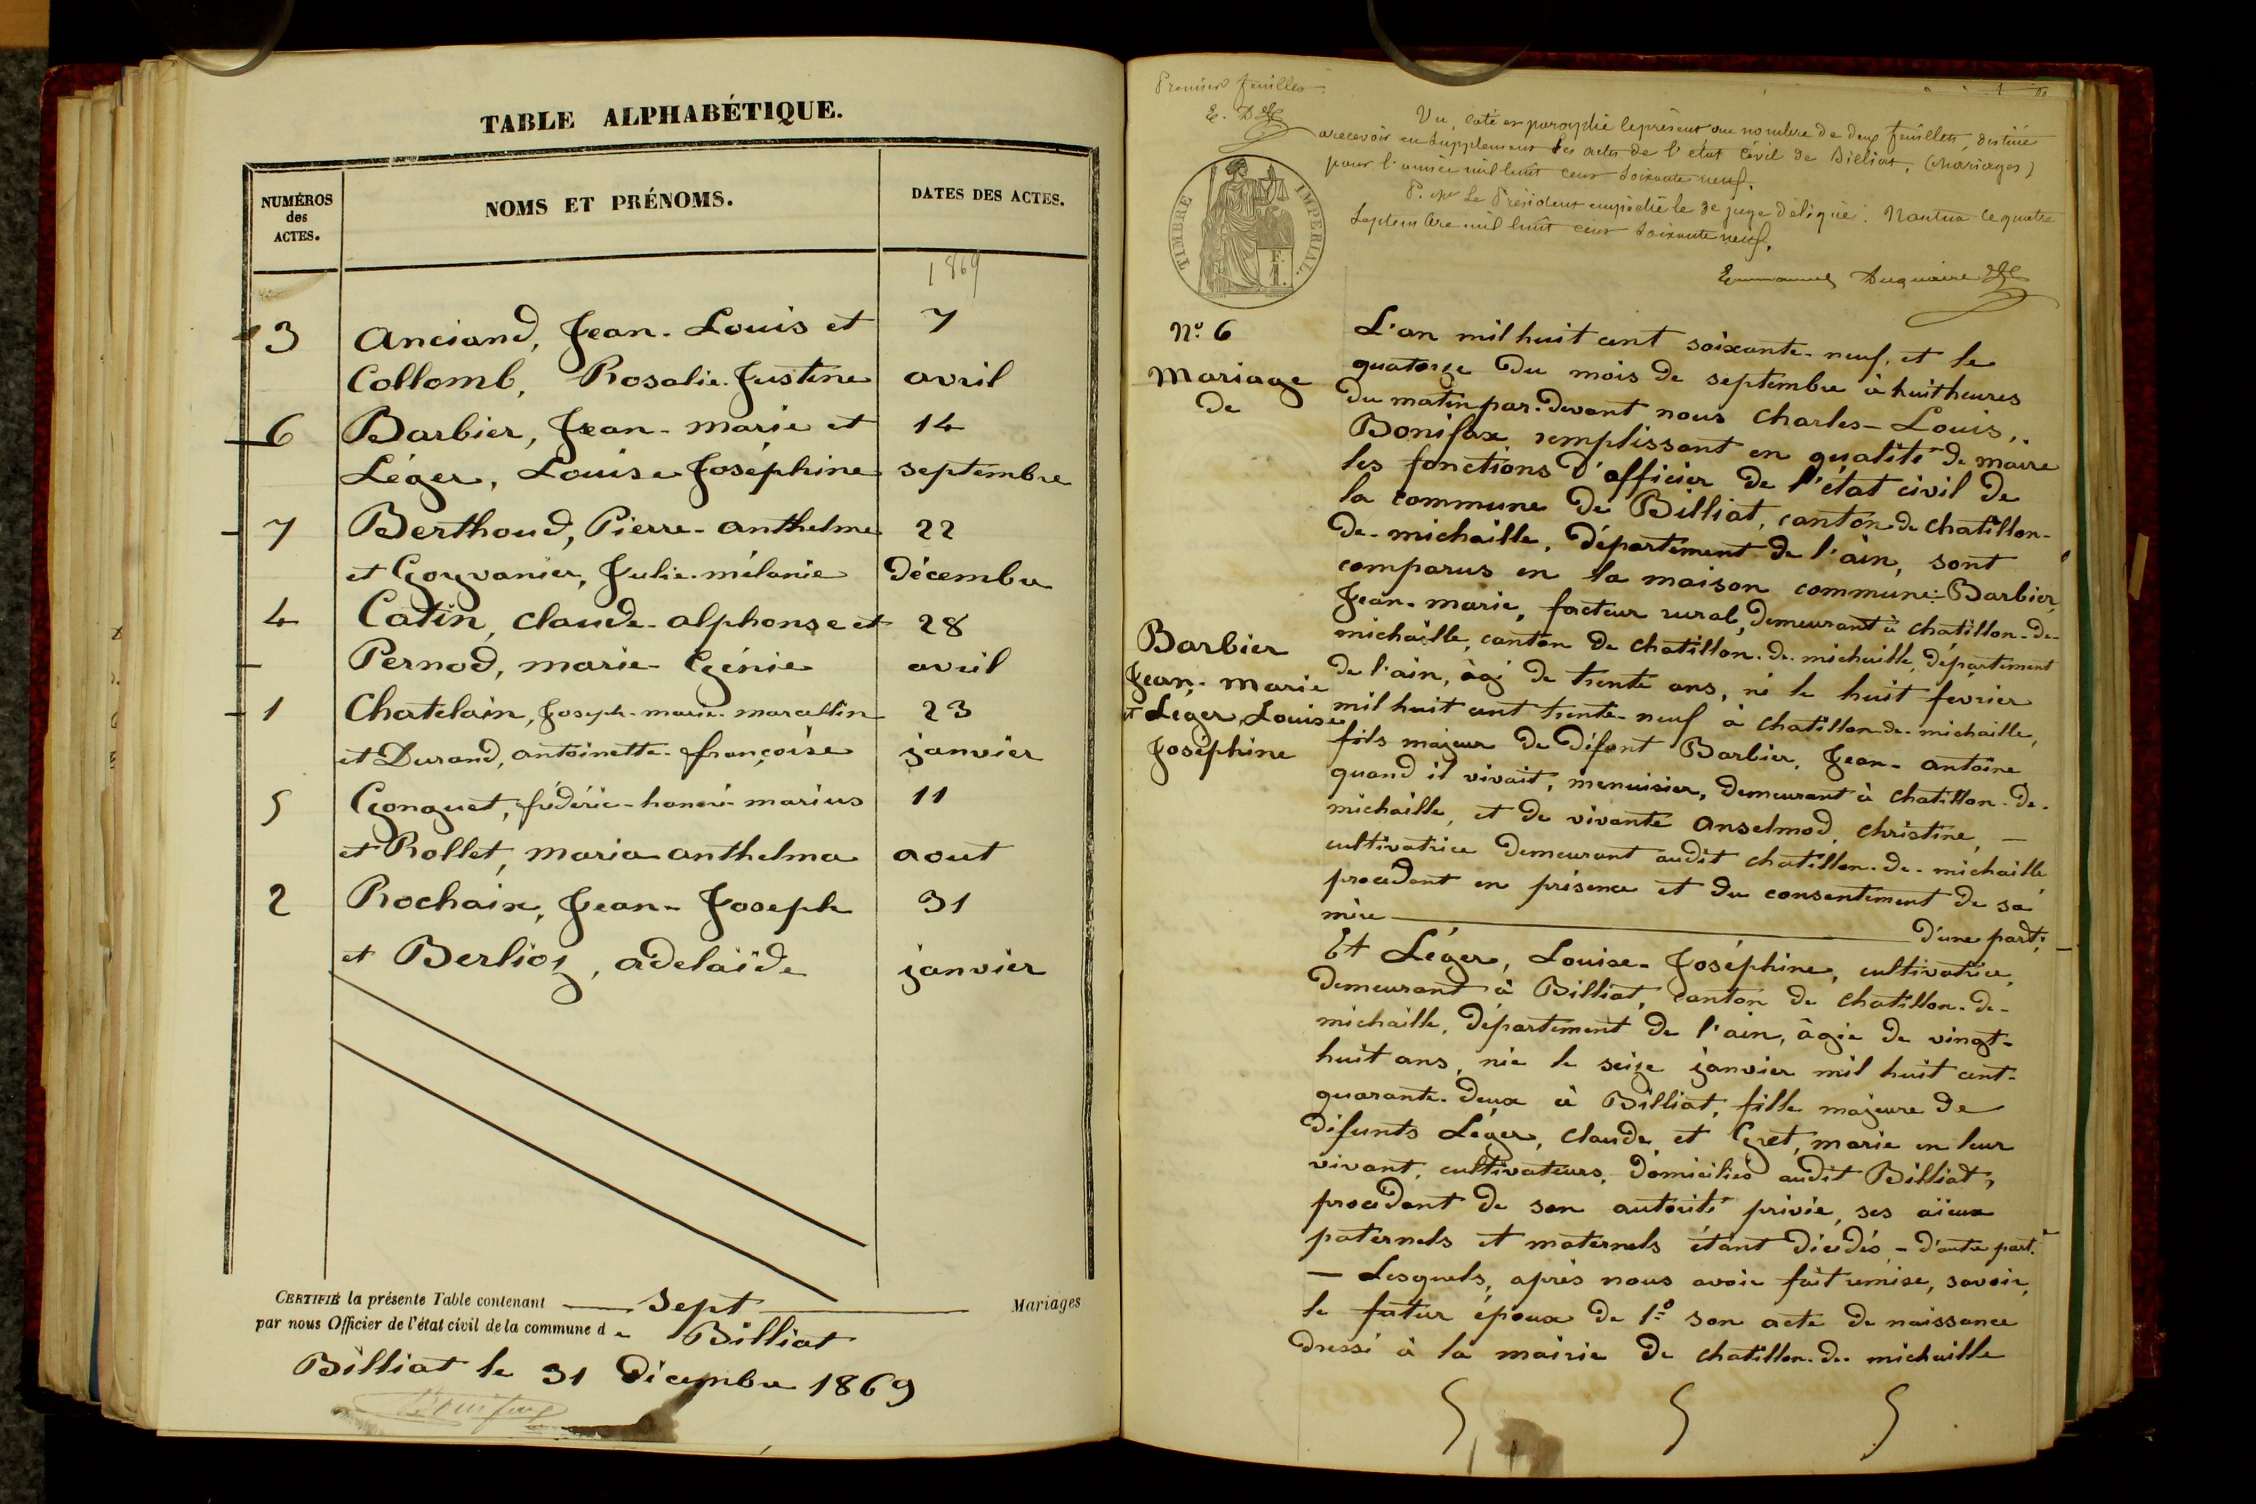 TABLE ALPHABÉTIQUE.
NUMÉROS
des
ACTES.
NOMS ET PRÉNOMS.
DATES DES ACTES.
1869
3 Anciand, Jean-Louis et 7
Collomb, Rosalie-Justine avril
6 Barbier, Jean-marie et 14
Léger, Louise Joséphine septembre
7 Berthoud, Pierre-anthelme 22
et Goyvanier, Julie-mélanie Décembre
4 Catin, claude-alphonse et 28
Pernod, marie-Génie avril
1 Chatelain, Joseph-marie-marcellin 23
et Durand, antoinette-françoise janvier
5 Gonguet, frédéric-honoré-marius 11
et Rollet, maria anthelma aout
2 Rochaix, Jean-Joseph 31
et Berlioz, adelaïde janvier
CERTIFIÉ la présente Table contenant sept Mariages
par nous Officier de l'état civil de la commune de Billiat
Billiat le 31 Décembre 1869
Bonifax
Premier feuillet
E. D
Vu, coté et paraphé le présent au nombre de deux feuillets, destiné
a recevoir en supplément les actes de l'état civil de Billiat, (Mariages)
pour l'année mil huit cent soixante neuf.
Le Président empêché le 3e juge délégué. Nantua le quatre
septembre mil huit cent soixante neuf.
Emmanuel Duquaire
TIMBRE IMPERIAL.
F.
1.
N.º 6
Mariage
de
Barbier
Jean-Marie
et Leger, Louise
Joséphine
L'an mil huit cent soixante-neuf, et le
quatorze du mois de septembre à huit heures
du matin par-devant nous Charles-Louis,
Bonifax remplissant en qualité de maire
les fonctions d'officier de l'état civil de
la commune de Billiat, canton de chatillon-
de-michaille, département de l'ain, sont
comparus en la maison commune: Barbier,
Jean-marie, facteur rural, demeurant à chatillon-de-
michaille, canton de chatillon-de-michaille, département
de l'ain, âgé de trente ans, né le huit fevrier
mil huit cent trente-neuf à chatillon-de-michaille,
fils majeur de défunt Barbier, Jean-antoine
quand il vivait, menuisier, demeurant à chatillon-de-
michaille, et de vivante Anselmod, christine,
cultivatrice demeurant audit chatillon-de-michaille
procédant en présence et du consentement de sa
mère d'une part;
Et Léger, Louise-Joséphine, cultivatrice,
demeurant à Billiat, canton de chatillon-de-
michaille, département de l'ain, âgée de vingt-
huit ans, née le seize janvier mil huit cent-
quarante-deux à Billiat, fille majeure de
défunts Léger, claude et Gret, marie en leur
vivant, cultivateurs, domiciliés audit Billiat,
procédant de son autorité privée, ses aïeux
paternels et maternels étant décédés - d'autre part.
— Lesquels, après nous avoir fait remise, savoir,
le futur époux de 1.º son acte de naissance
dressé à la mairie de chatillon-de-michaille